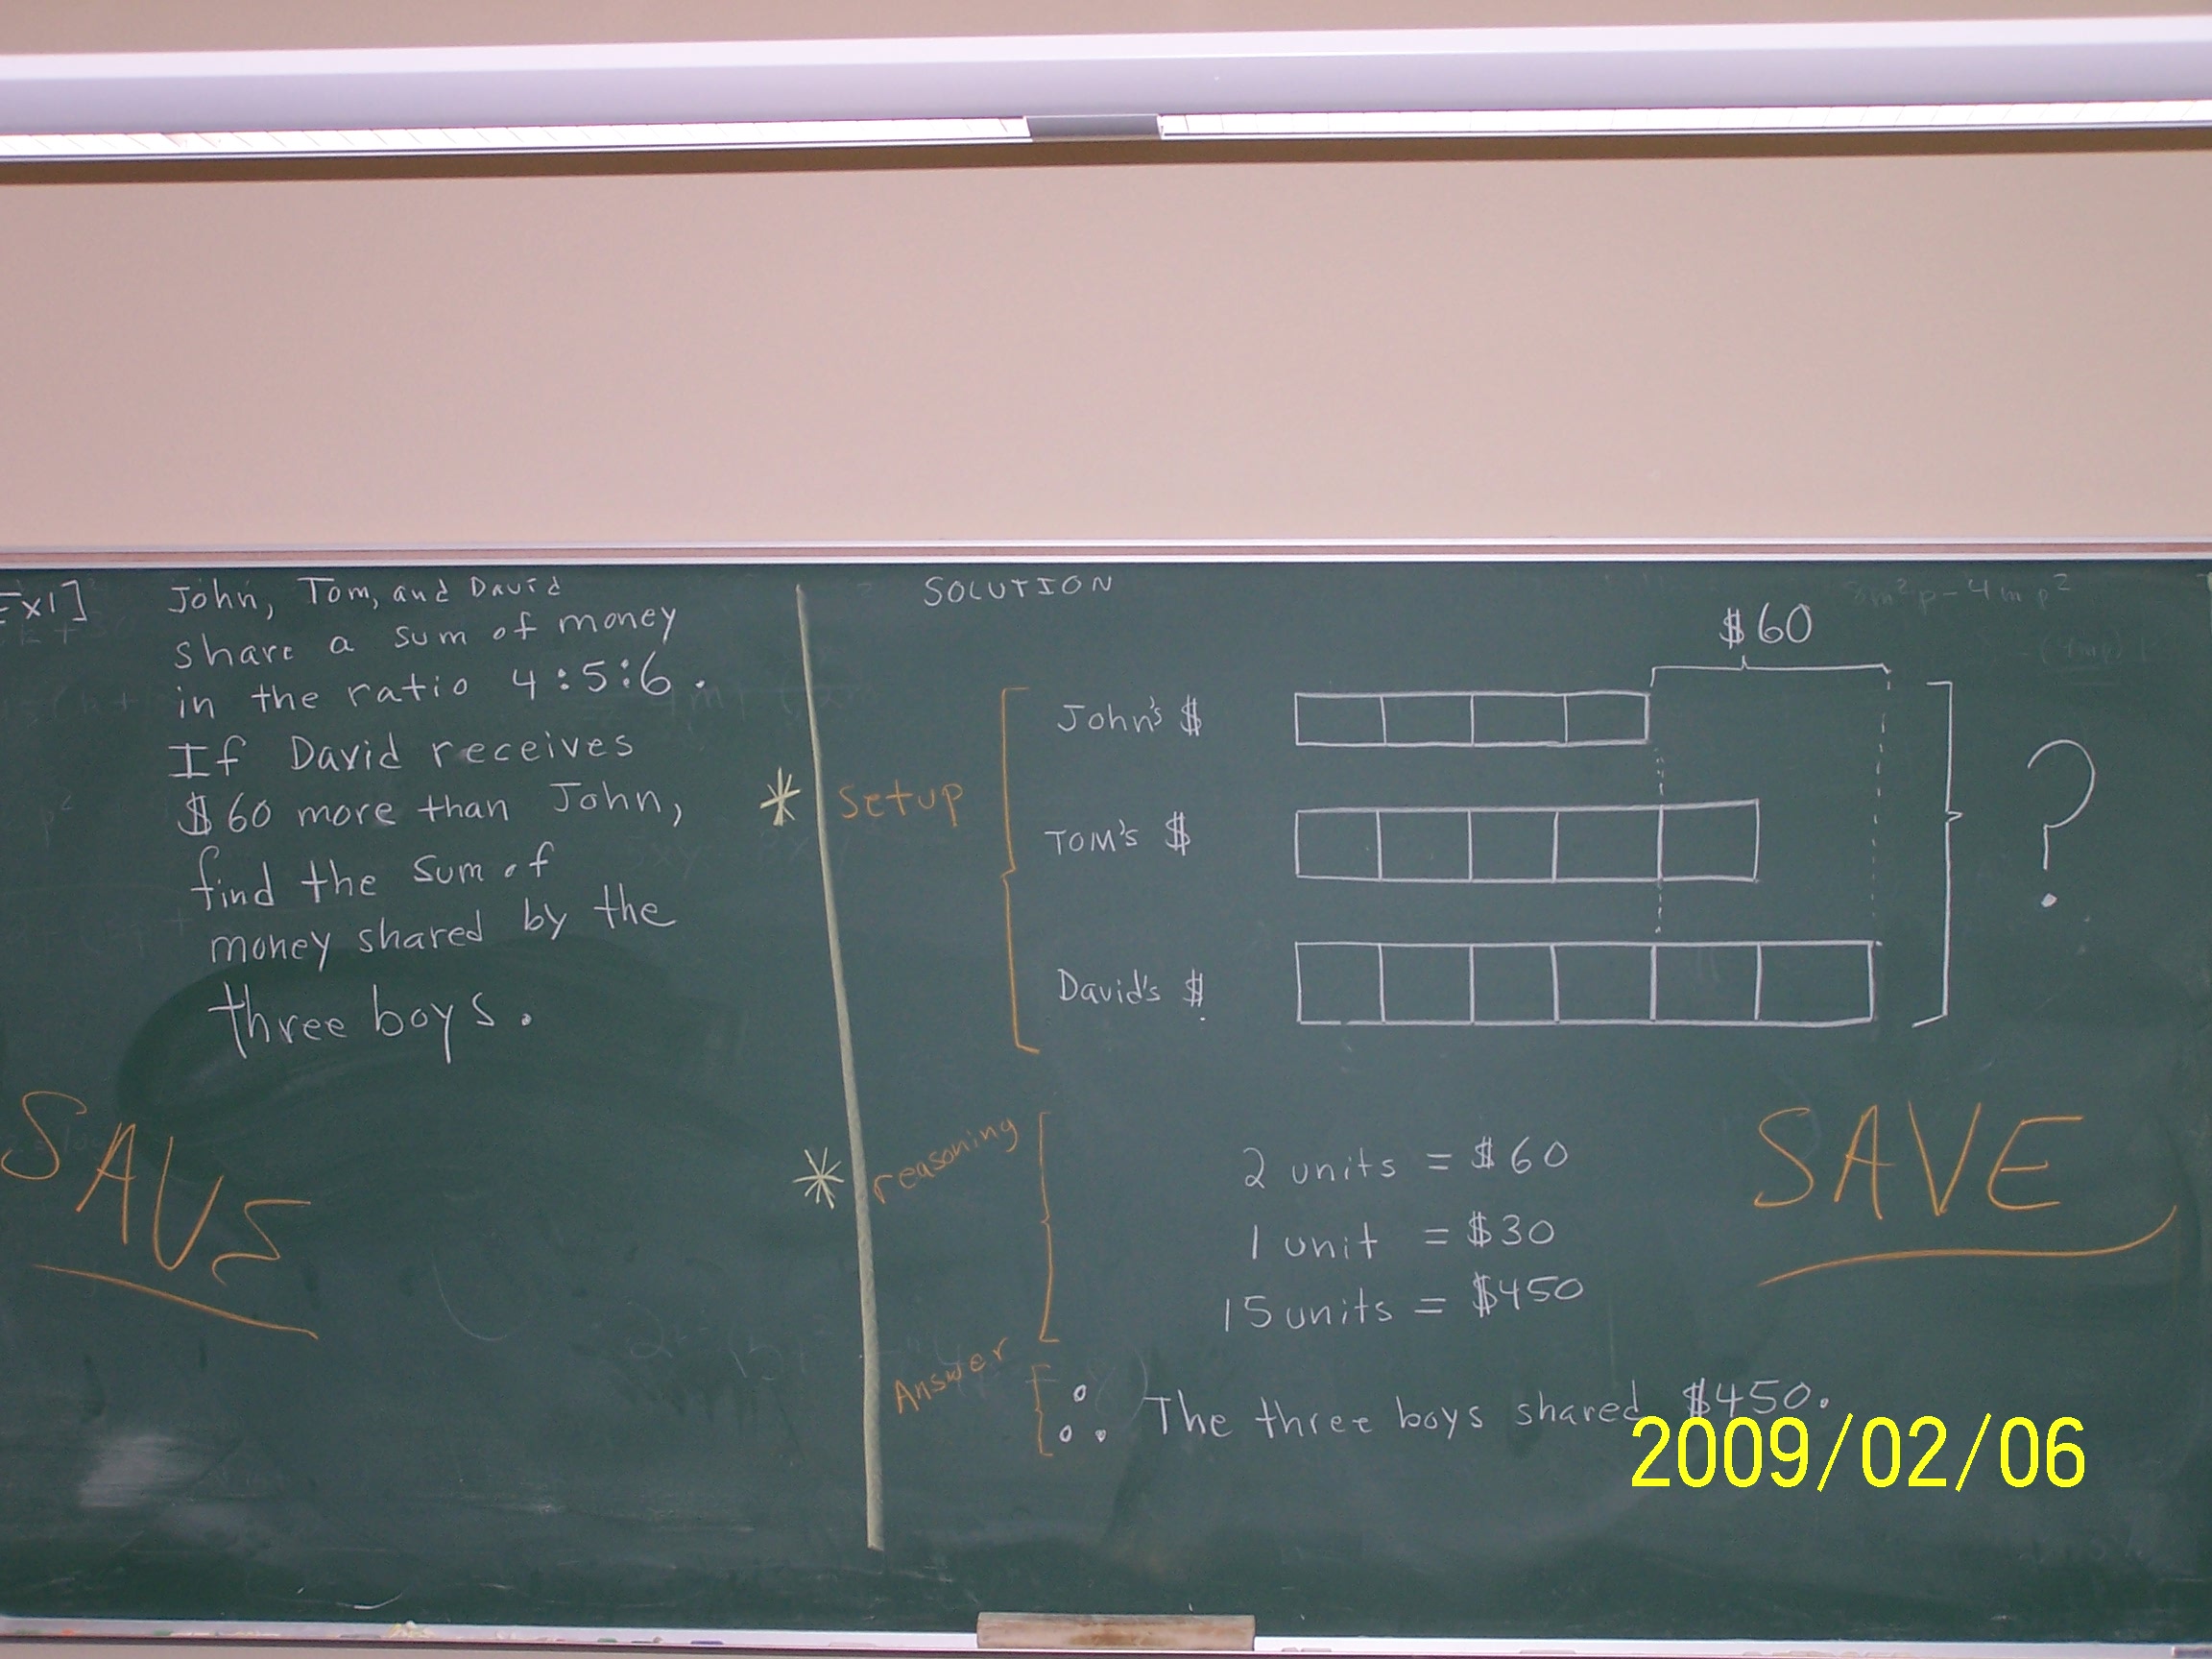 Ex1] John, Tom, and David
share a sum of money
in the ratio 4:5:6.
If David receives
$60 more than John,
find the sum of
money shared by the
three boys.
SAVE
SOLUTION
$60
John's $
Tom's $
David's $
?
* setup
* reasoning
2 units = $60
1 unit = $30
15 units = $450
SAVE
Answer
∴ The three boys shared $450.
2009/02/06